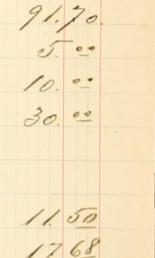 91.70.
5.00
10.00
30.00
11.50
17 68